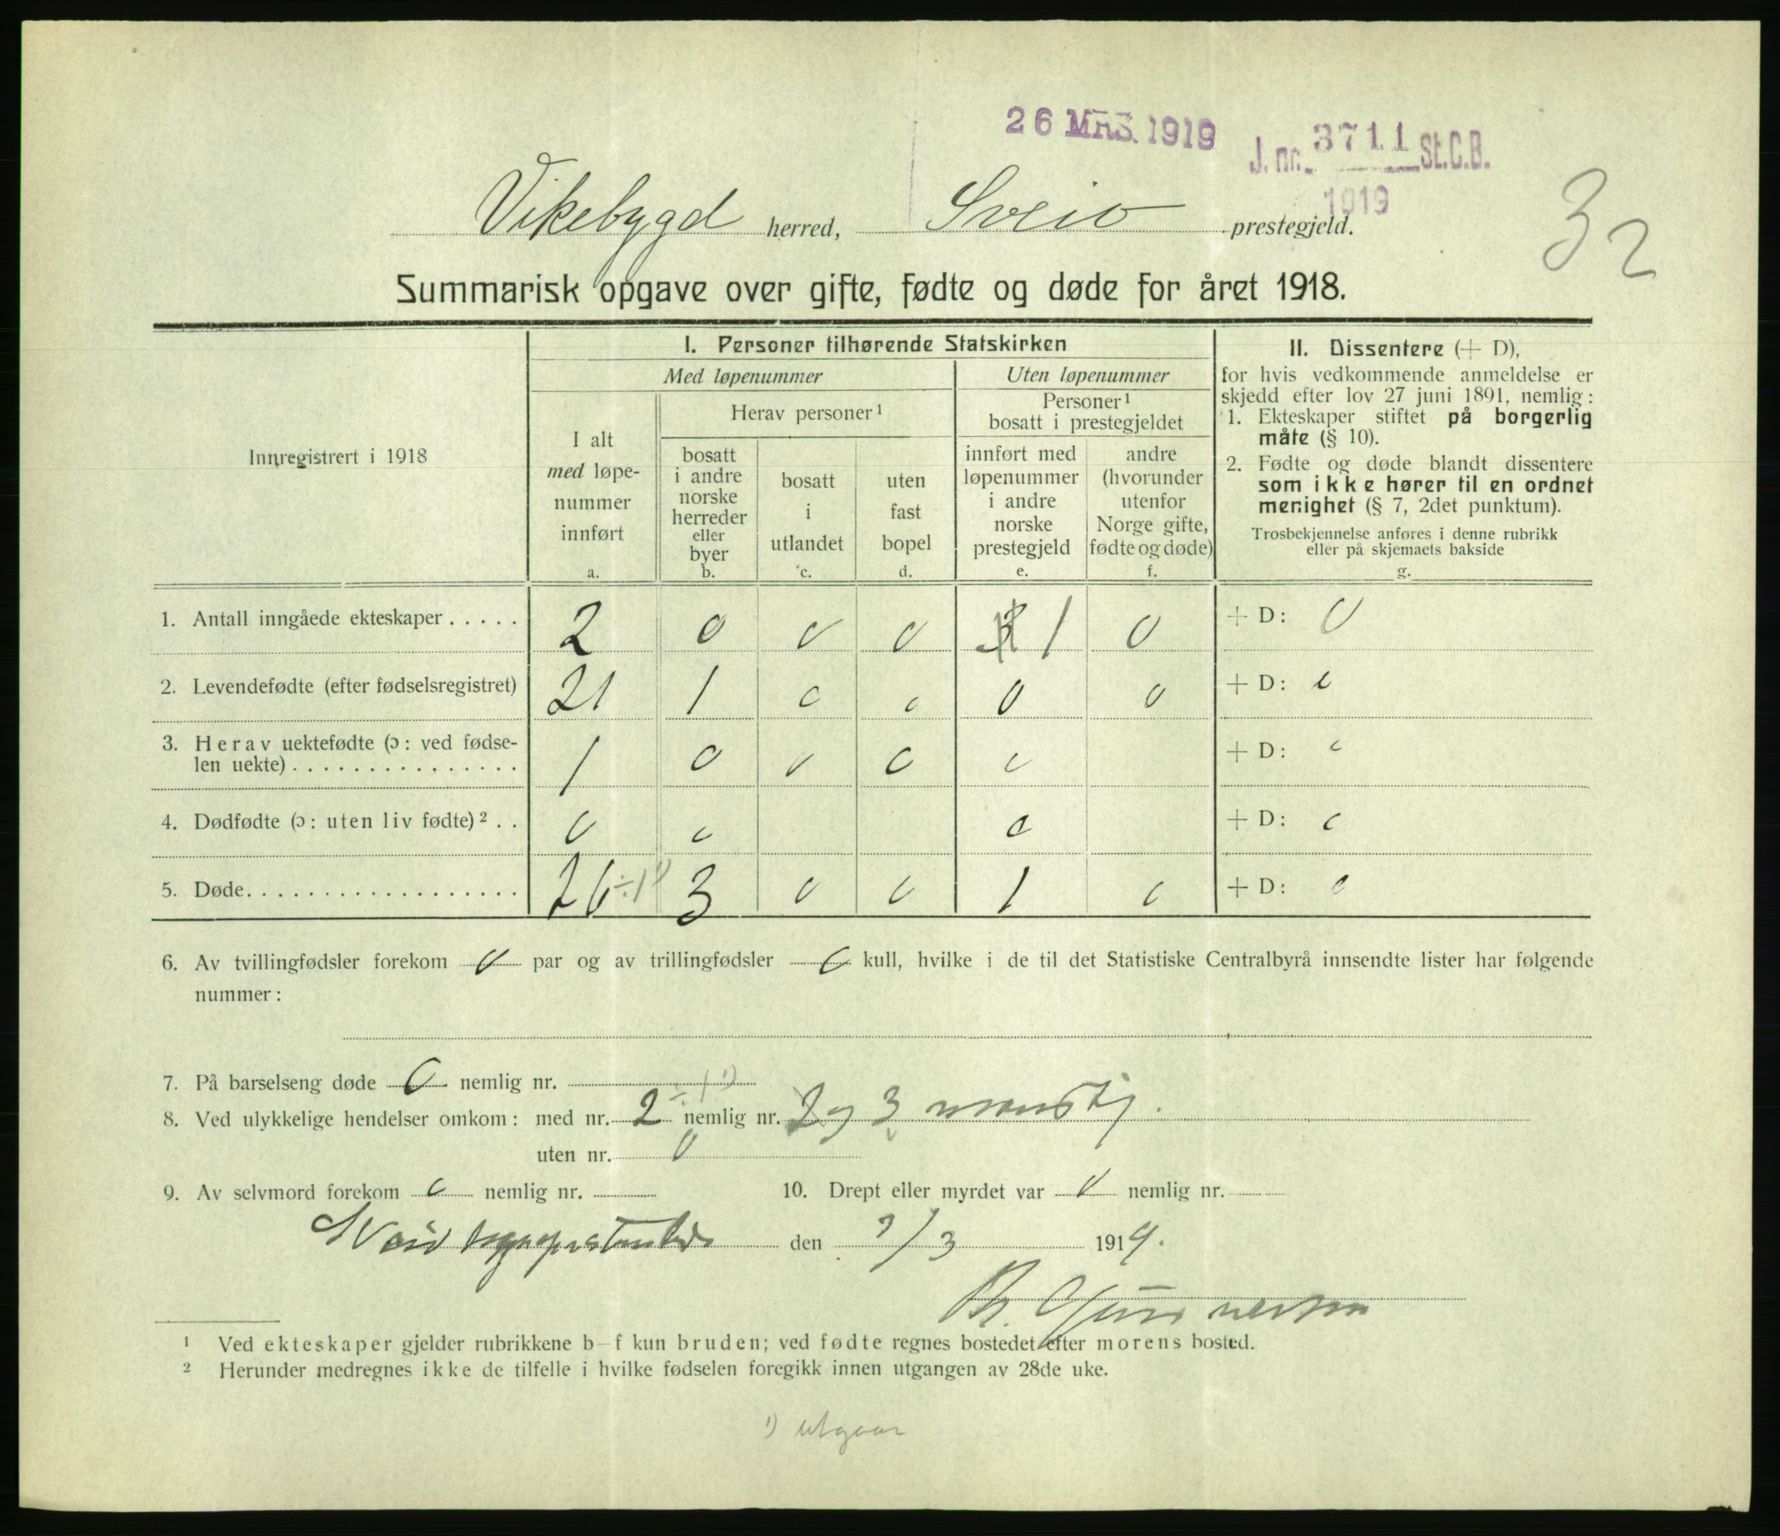 26 MRS. 1919
J. nr. 3711 St.C.B.
1919
32
Vikebygd herred, Sveio prestegjeld.
Summarisk opgave over gifte, fødte og døde for året 1918.
Innregistrert i 1918
I. Personer tilhørende Statskirken
Med løpenummer
Uten løpenummer
I alt med løpenummer innført
a.
Herav personer¹
bosatt i andre norske herreder eller byer
b.
bosatt i utlandet
c.
uten fast bopel
d.
Personer¹ bosatt i prestegjeldet
innført med løpenummer i andre norske prestegjeld
e.
andre (hvorunder utenfor Norge gifte, fødte og døde)
f.
II. Dissentere (+ D),
for hvis vedkommende anmeldelse er
skjedd efter lov 27 juni 1891, nemlig:
1. Ekteskaper stiftet på borgerlig
måte (§ 10).
2. Fødte og døde blandt dissentere
som ikke hører til en ordnet
menighet (§ 7, 2det punktum).
Trosbekjennelse anføres i denne rubrikk
eller på skjemaets bakside
g.
1. Antall inngåede ekteskaper . . . . . 2 0 0 0 1 0 + D: 0
2. Levendefødte (efter fødselsregistret) 21 1 0 0 0 0 + D: 0
3. Herav uektefødte (ɔ: ved fødse-
len uekte) . . . . . . . . . . . . . . . 1 0 0 0 0 + D: 0
4. Dødfødte (ɔ: uten liv fødte)² . . 0 0 0 + D: 0
5. Døde. . . . . . . . . . . . . . . . . . 26 ÷1¹⁾ 3 0 0 1 0 + D: 0
6. Av tvillingfødsler forekom 0 par og av trillingfødsler 0 kull, hvilke i de til det Statistiske Centralbyrå innsendte lister har følgende
nummer:
7. På barselseng døde 0 nemlig nr.
8. Ved ulykkelige hendelser omkom: med nr. 2 ÷1¹⁾ nemlig nr. 2 og 3 mandkj.
uten nr. 0
9. Av selvmord forekom 0 nemlig nr.
10. Drept eller myrdet var 0 nemlig nr.
den 7/3 1919.
¹ Ved ekteskaper gjelder rubrikkene b–f kun bruden; ved fødte regnes bostedet efter morens bosted.
² Herunder medregnes ikke de tilfelle i hvilke fødselen foregikk innen utgangen av 28de uke.
¹⁾ utgaar